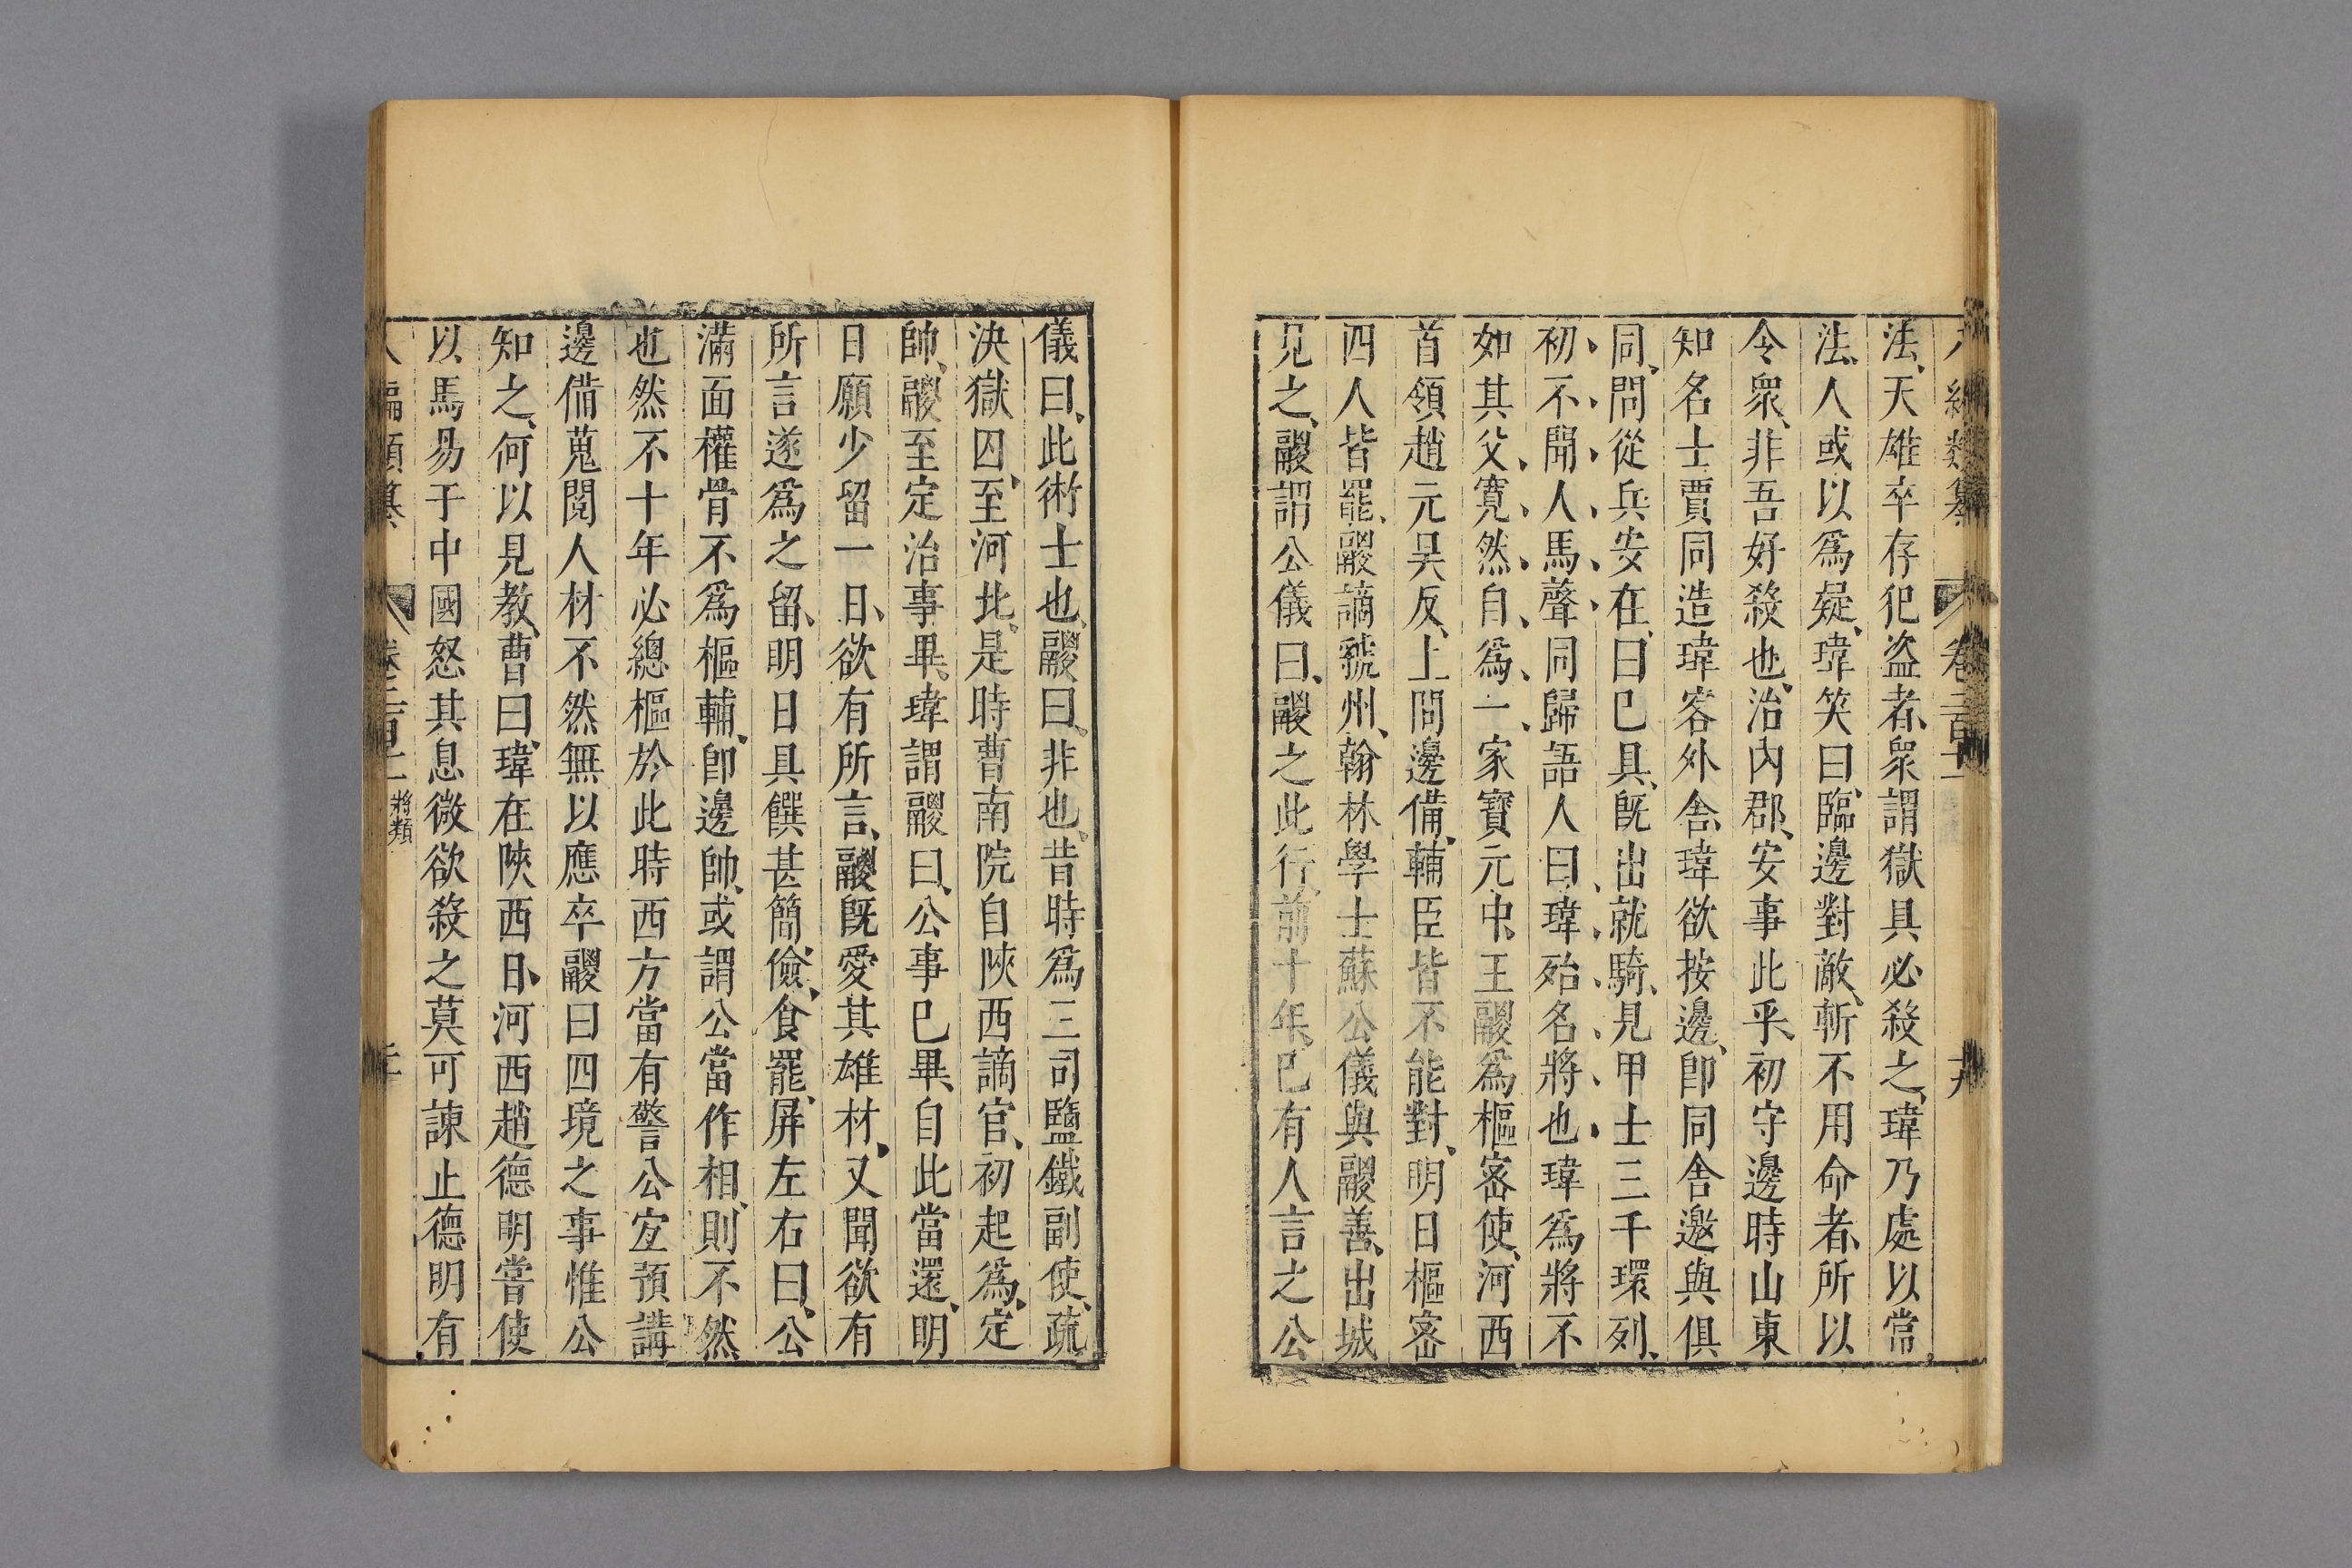 編類纂 卷二百十一 十九
法、天雄卒存犯盜者、衆謂獄具必殺之、瑋乃處以常
法、人或以爲疑、瑋笑曰、臨邊對敵、斬不用命者、所以
令衆、非吾好殺也、治內郡、安事此乎、初守邊時山東
知名士賈同造瑋客外舍、瑋欲按邊、卽同舍邀與俱
同、問從兵安在、曰已具、旣出就騎、見甲士三千環列、
初不聞人馬聲同歸語人曰、瑋殆名將也、瑋爲將不
如其父、寬然自爲一家寶元中、王鬷爲樞密使、河西
首領趙元昊反、上問邊備、輔臣皆不能對、明日樞密
四人皆罷、鬷謫虢州、翰林學士蘇公儀與鬷善、出城
見之、鬷謂公儀曰、鬷之此行、前十年、已有人言之公
儀曰、此術士也、鬷曰、非也、昔時爲三司鹽鐵副使、疏
決獄囚、至河北、是時曹南院自陝西謫官、初起爲、定
帥、鬷至定治事畢、瑋謂鬷曰、公事已畢、自此當還、明
日願少留一日、欲有所言、鬷旣愛其雄材、又聞欲有
所言遂爲之留、明日具饌甚簡儉、食罷、屏左右曰、公
滿面權骨不爲樞輔、卽邊帥、或謂公當作相、則不然、
也然不十年必總樞於此時西方當有警公宐預講
邊備蒐閱人材不然無以應卒鬷曰四境之事惟公
知之、何以見教、曹曰、瑋在陝西日、河西趙德明嘗使
以馬易于中國怒其息微欲殺之莫可諫止德明有
人編類纂 卷二百十一 將類 二十